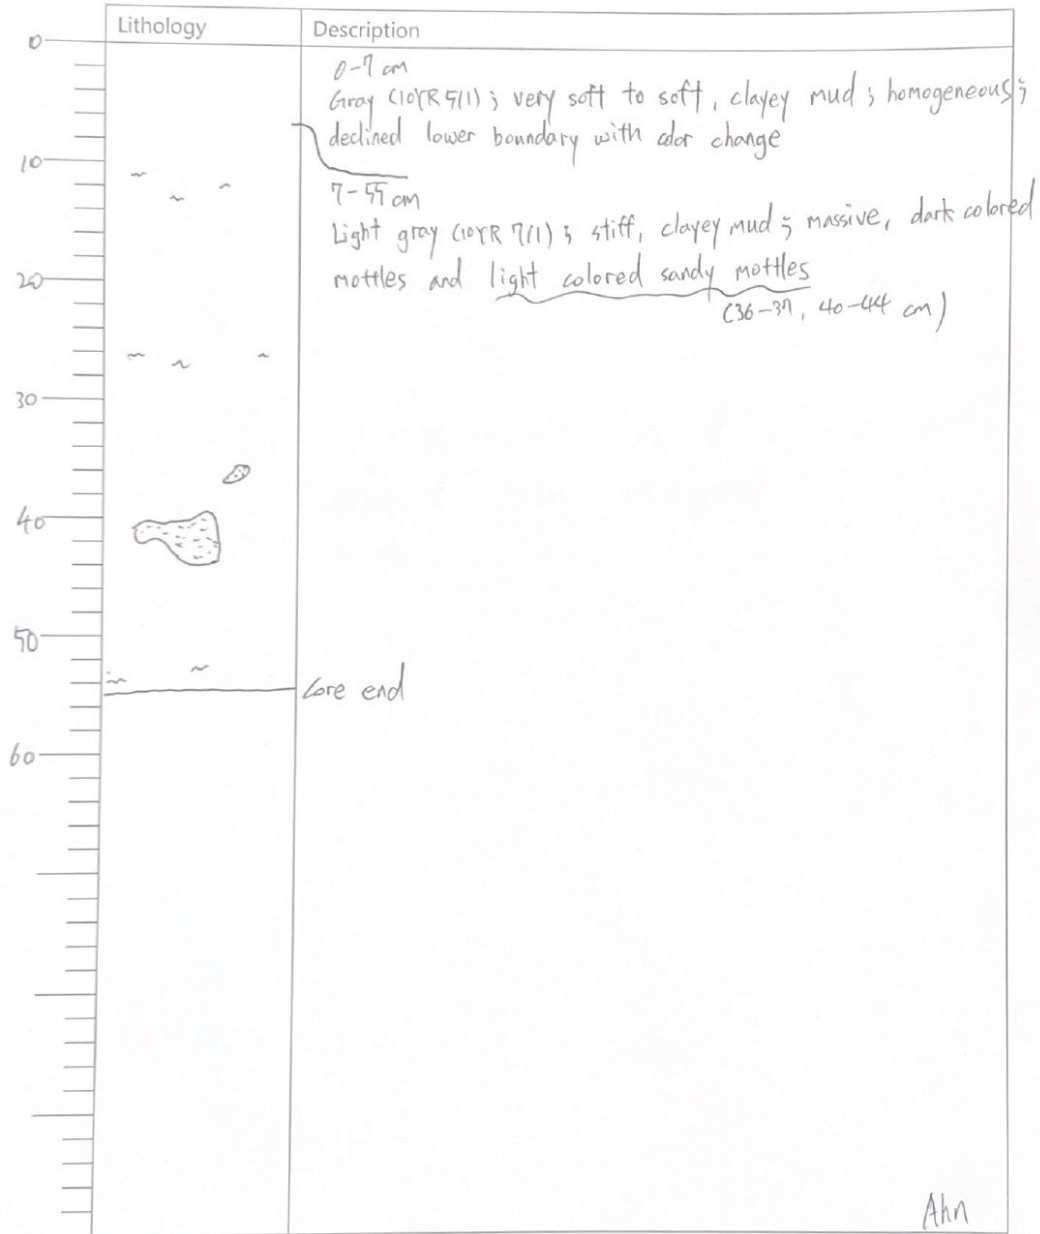 Lithology
Description
0
10
20
30
40
50
60
0-7 cm
Gray (10YR 5/1) ; very soft to soft, clayey mud ; homogeneous ;
declined lower boundary with color change
7-55 cm
Light gray (10YR 7/1) ; stiff, clayey mud ; massive, dark colored
mottles and light colored sandy mottles
(36-37, 40-44 cm)
Core end
Ahn